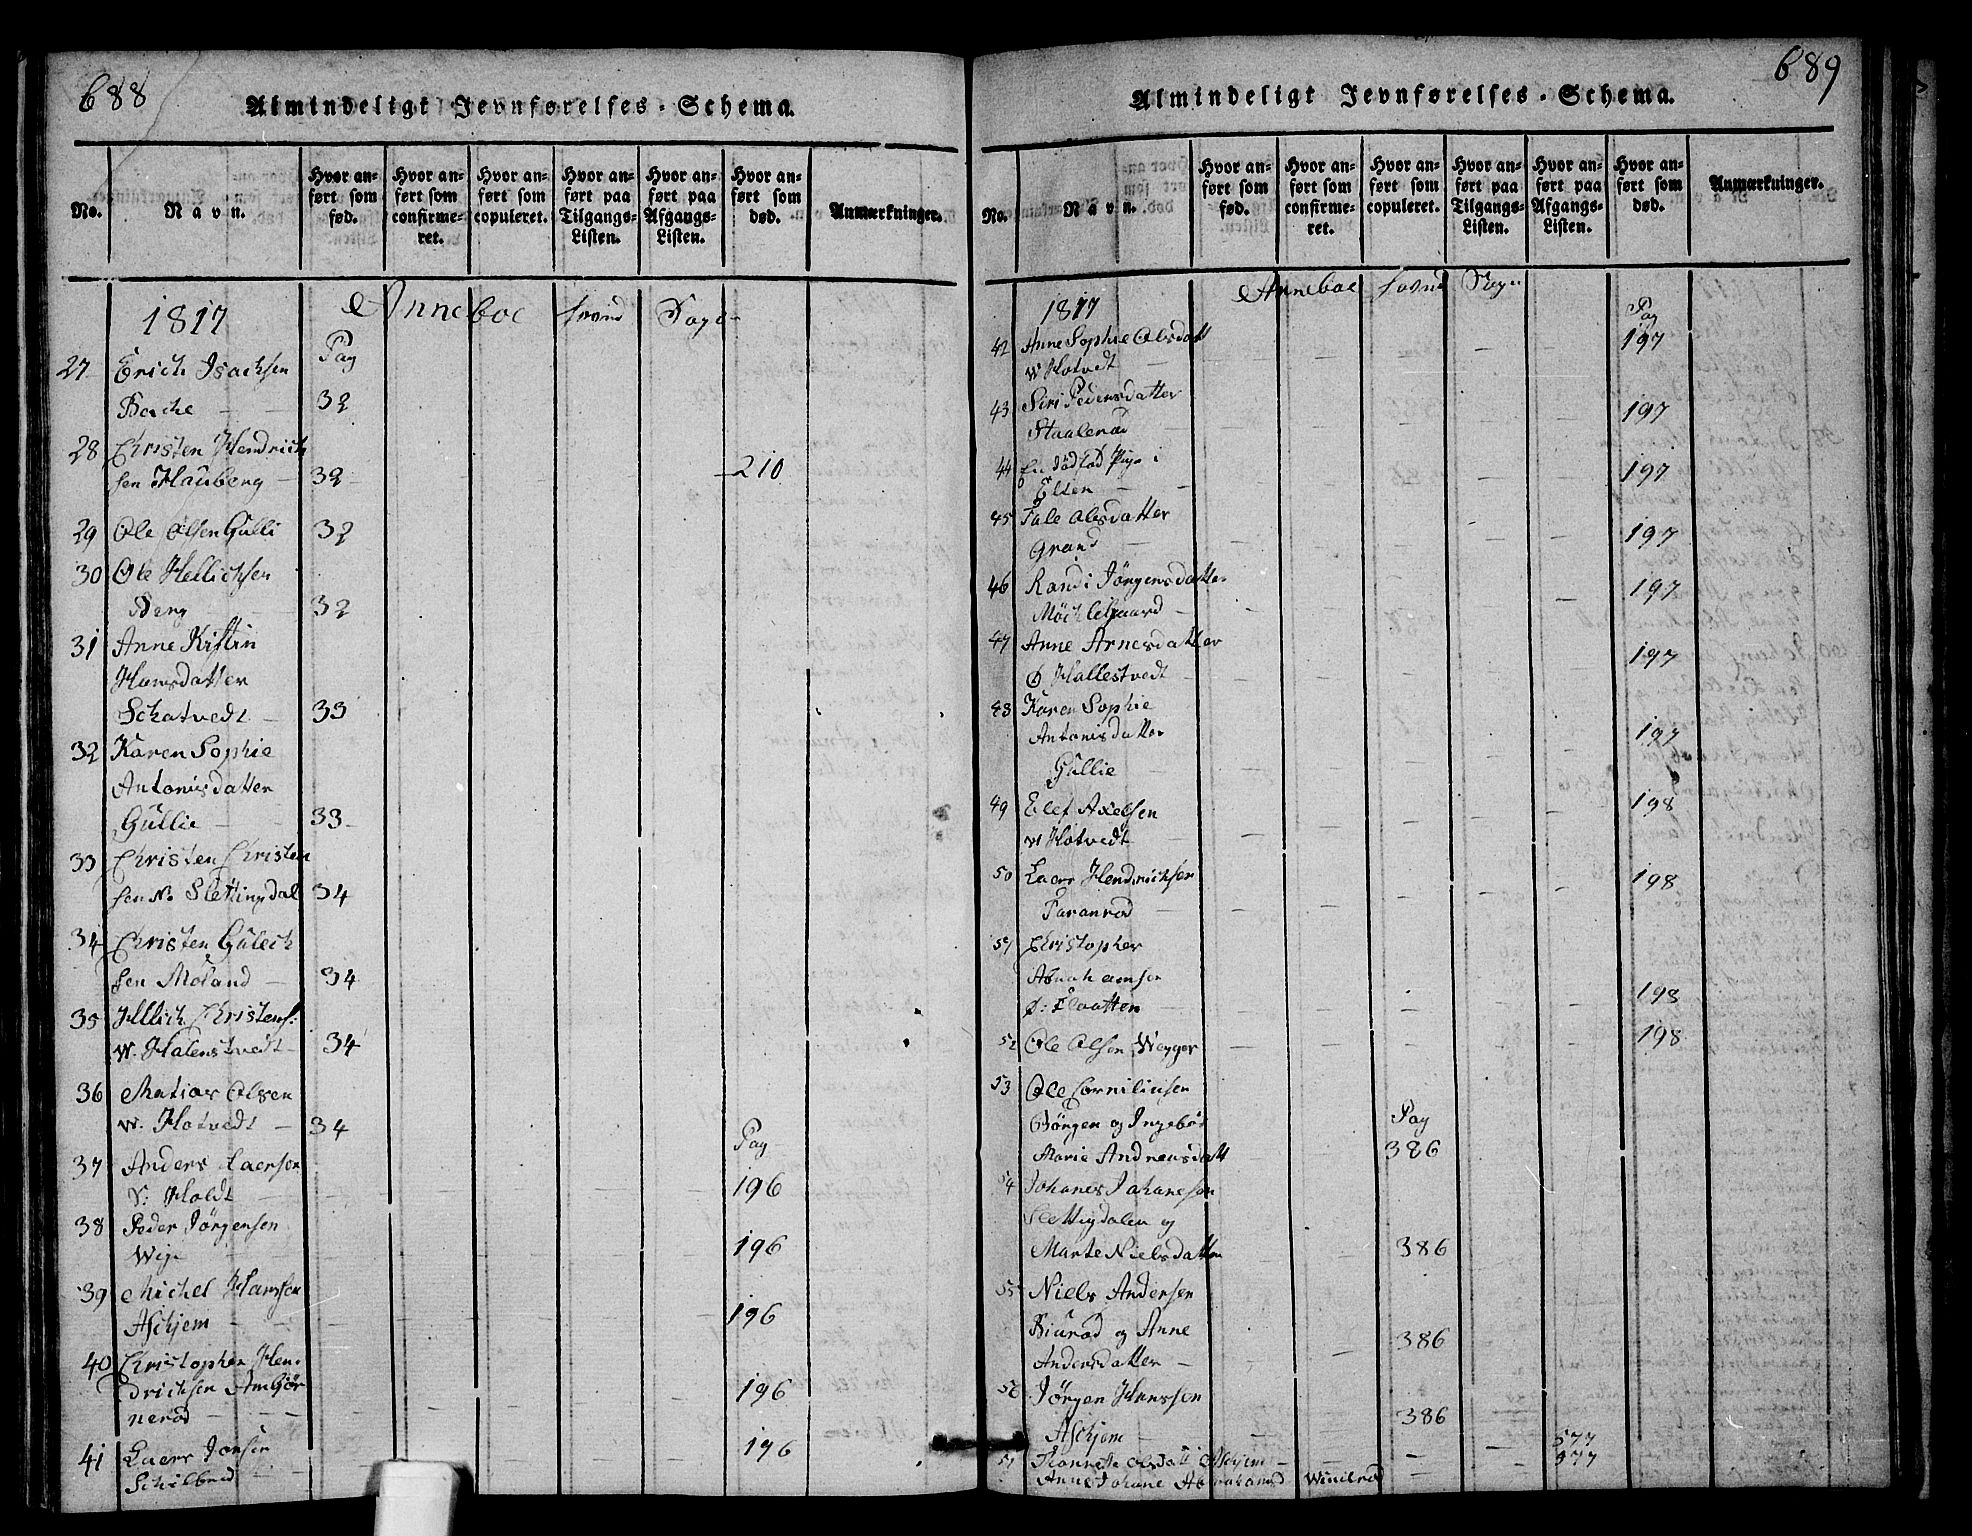 688
Almindeligt Jevnførelses-Schema.
No.
Navn.
Hvor anført som fød.
Hvor anført som confirmeret.
Hvor anført som copuleret.
Hvor anført paa Tilgangs-Listen.
Hvor anført paa Afgangs-Listen.
Hvor anført som død.
Anmærkninger.
1817 Anneboe Sogn
Pag
27 Erich Isachsen
Bache 32
28 Christen Hendrich
sen Hauberg 32 210
29 Ole Olsen Gulli 32
30 Ole Hellichsen
Berg 32
31 Anne Kistin
Hansdatter
Schatvedt 33
32 Karen Sophie
Antonisdatter
Gullie 33
33 Christen Christen
sen N. Slettingdal 34
34 Christen Gulich
sen Moland 34
35 Hllich Christens:
W. Halenstvedt 34
36 Matias Olsen
W. Hotvedt 34
Pag
37 Anders Laersen
V: Holdt 196
38 Peder Jørgensen
Wige 196
39 Michel Hanssen
Aschjem 196
40 Christopher Hen-
drichsen Ambjør
nerød 196
41 Laers Jonsen
Schilbred 196
689
Almindeligt Jevnførelses-Schema.
No.
Navn.
Hvor anført som fød.
Hvor anført som confirmeret.
Hvor anført som copuleret.
Hvor anført paa Tilgangs-Listen.
Hvor anført paa Afgangs-Listen.
Hvor anført som død.
Anmærkninger.
1817 Anneboe Sogn
Pag
42 Anne Sophie Olsdatt 197
W Hotvedt
43 Siri Pedersdatter 197
Staalerød
44 En dødfød Pige i 197
Ellen
45 Tale Olsdatter 197
Grand
46 Randi Jørgensdatter 197
Møchlegaard
47 Anne Arnesdatter 197
Ø Hallestvedt
48 Karen Sophie
Antonisdatter 197
Gullie
49 Elef Axelsen 198
W Hotvedt
50 Laers Hendrichsen 198
Taranrød
51 Christopher
Abrahamsen
Ø: Flaatten 198
52 Ole Olsen Wegger 198
53 Ole Corniliusen
Børgen og Ingebør Pag
Marie Andreasdatt 386
54 Johanes Johanesen
Slettigdalen og
Marte Nielsdatter 386
55 Niels Andersen
Biurød og Anne 386
Andersdatter
56 Jørgen Hanssen
Aschjem 386
577
Aschjem 977
Anne Johane